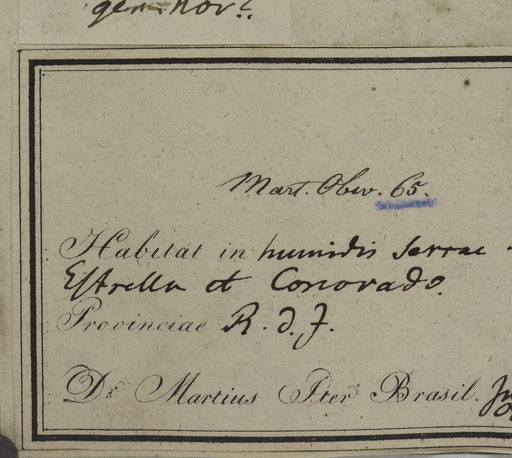 gen. nov?.
Mart. Obs. 65.
Habitat in humidis Serrae
Estrella et Corcovado.
Provinciae R. d. J.
Dr. Martius Iter Brasil.